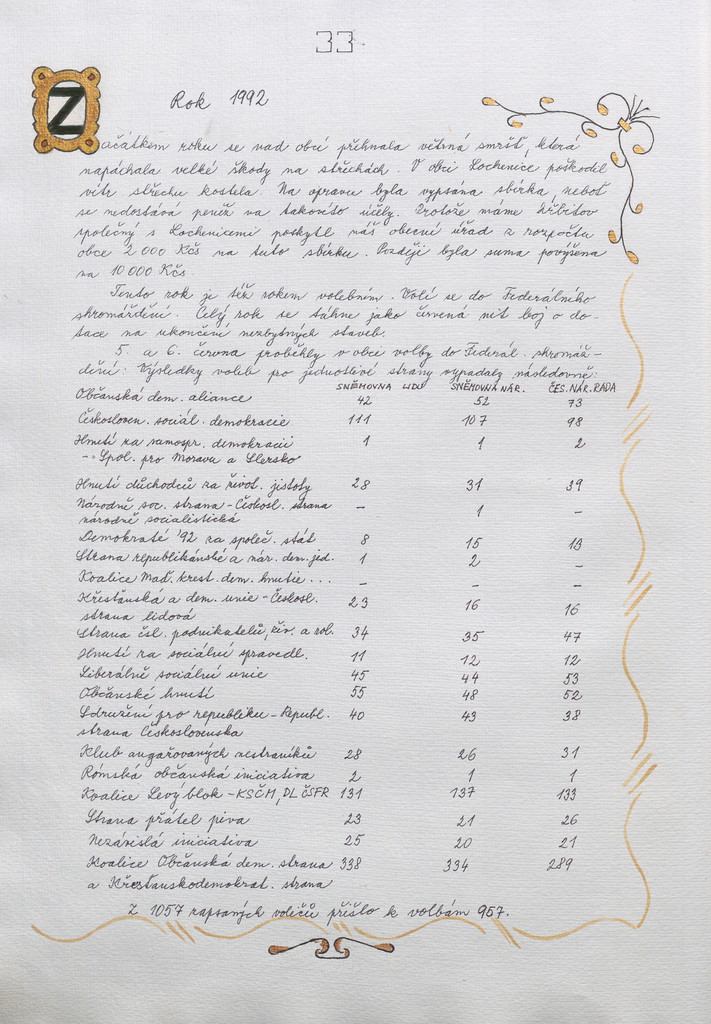 33.
Rok 1992
Začátkem roku se nad obcí přihnala větrná smršť, která
napáchala velké škody na střechách. V obci Lochenice poškodil
vítr střechu kostela. Na opravu byla vypsána sbírka, neboť
se nedostává peněz na takovéto účely. Protože máme hřbitov
společný s Lochenicemi poskytl náš obecní úřad z rozpočtu
obce 2 000 Kčs na tuto sbírku. Později byla suma povýšena
na 10 000 Kčs.
Tento rok je též rokem volebním. Volí se do Federálního
shromáždění. Celý rok se táhne jako červená nit boj o do-
tace na ukončení nezbytných staveb.
5. a 6. června proběhly v obci volby do Federál. shromáž-
dění: Výsledky voleb pro jednotlivé strany vypadaly následovně:
SNĚMOVNA LIDU SNĚMOVNA NÁR. ČES. NÁR. RADA
Občanská dem. aliance 42 52 73
Českosloven. sociál. demokracie 111 107 98
Hnutí za samospr. demokracii 1 1 2
- Spol. pro Moravu a Slezsko
Hnutí důchodců za život. jistoty 28 31 39
Národně soc. strana - Českosl. strana - 1 -
národně socialistická
Demokraté '92 za společ. stát 8 15 13
Strana republikánské a nár. dem. jed. 1 2 -
Koalice Maď. krest. dem. hnutie ... - - -
Křesťanská a dem. unie - Českosl. 23 16 16
strana lidová
Strana čsl. podnikatelů, živ. a rol. 34 35 47
Hnutí za sociální spravedl. 11 12 12
Liberálně sociální unie 45 44 53
Občanské hnutí 55 48 52
Sdružení pro republiku - Republ. 40 43 38
strana Československa
Klub angažovaných nestraníků 28 26 31
Rómská občanská iniciativa 2 1 1
Koalice Levý blok - KSČM, DL ČSFR 131 137 133
Strana přátel piva 23 21 26
Nezávislá iniciativa 25 20 21
Koalice Občanská dem. strana 338 334 289
a Křesťanskodemokrat. strana
Z 1057 zapsaných voličů přišlo k volbám 957.